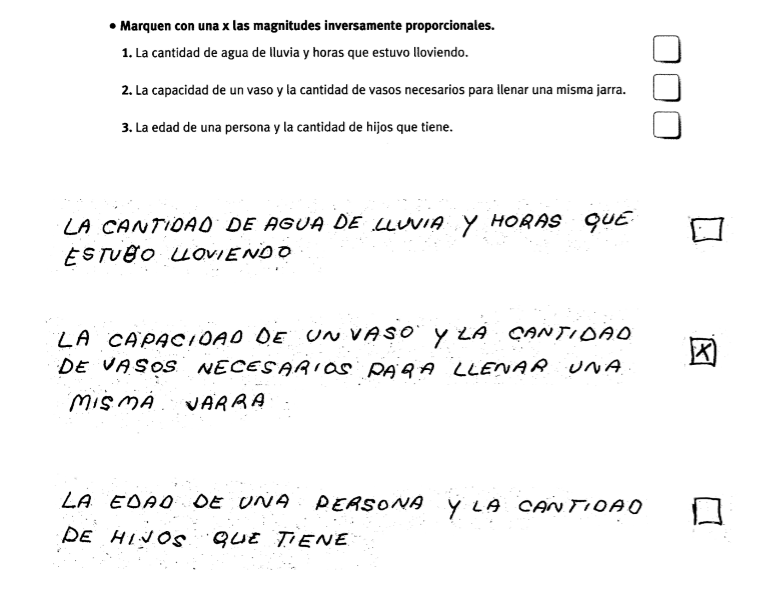 • Marquen con una x las magnitudes inversamente proporcionales.
1. La cantidad de agua de lluvia y horas que estuvo lloviendo.
2. La capacidad de un vaso y la cantidad de vasos necesarios para llenar una misma jarra.
3. La edad de una persona y la cantidad de hijos que tiene.
LA CANTIDAD DE AGUA DE LLUVIA Y HORAS QUE
ESTUBO LLOVIENDO
LA CAPACIDAD DE UN VASO Y LA CANTIDAD
DE VASOS NECESARIOS PARA LLENAR UNA
X
MISMA JARRA
LA EDAD DE UNA PERSONA Y LA CANTIDAD
DE HIJOS QUE TIENE